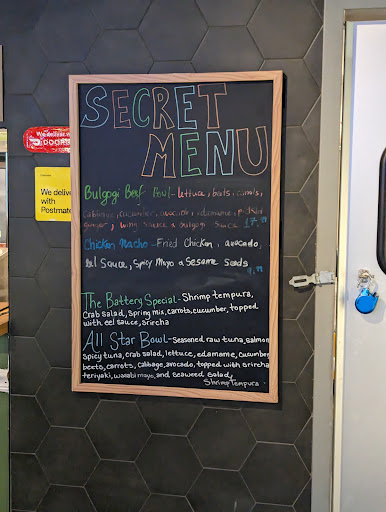 SECRET
MENU
We deliver w
DOORD
We delive
with
Postmate
Bulgogi Beef Bowl - Lettuce, beets, carrots,
Cabbage, cucumber, avocado, edamame, pickled
ginger, Wing Sauce & Bulgogi Sauce 17.
Chicken Nacho - Fried Chicken, avocado,
Eel Sauce, Spicy Mayo & Sesame Seeds
The Battery Special - Shrimp tempura,
Crab salad, Spring mix, carrots, cucumber, topped
with eel sauce, sricha
All Star Bowl - Seasoned raw tuna, salmon
Spicy tuna, crab salad, lettuce, edamame, cucumber
beets, carrots, cabbage, avocado, topped with sriracha
teriyaki, wasabi mayo, and seaweed salad,
Shrimp Tempura